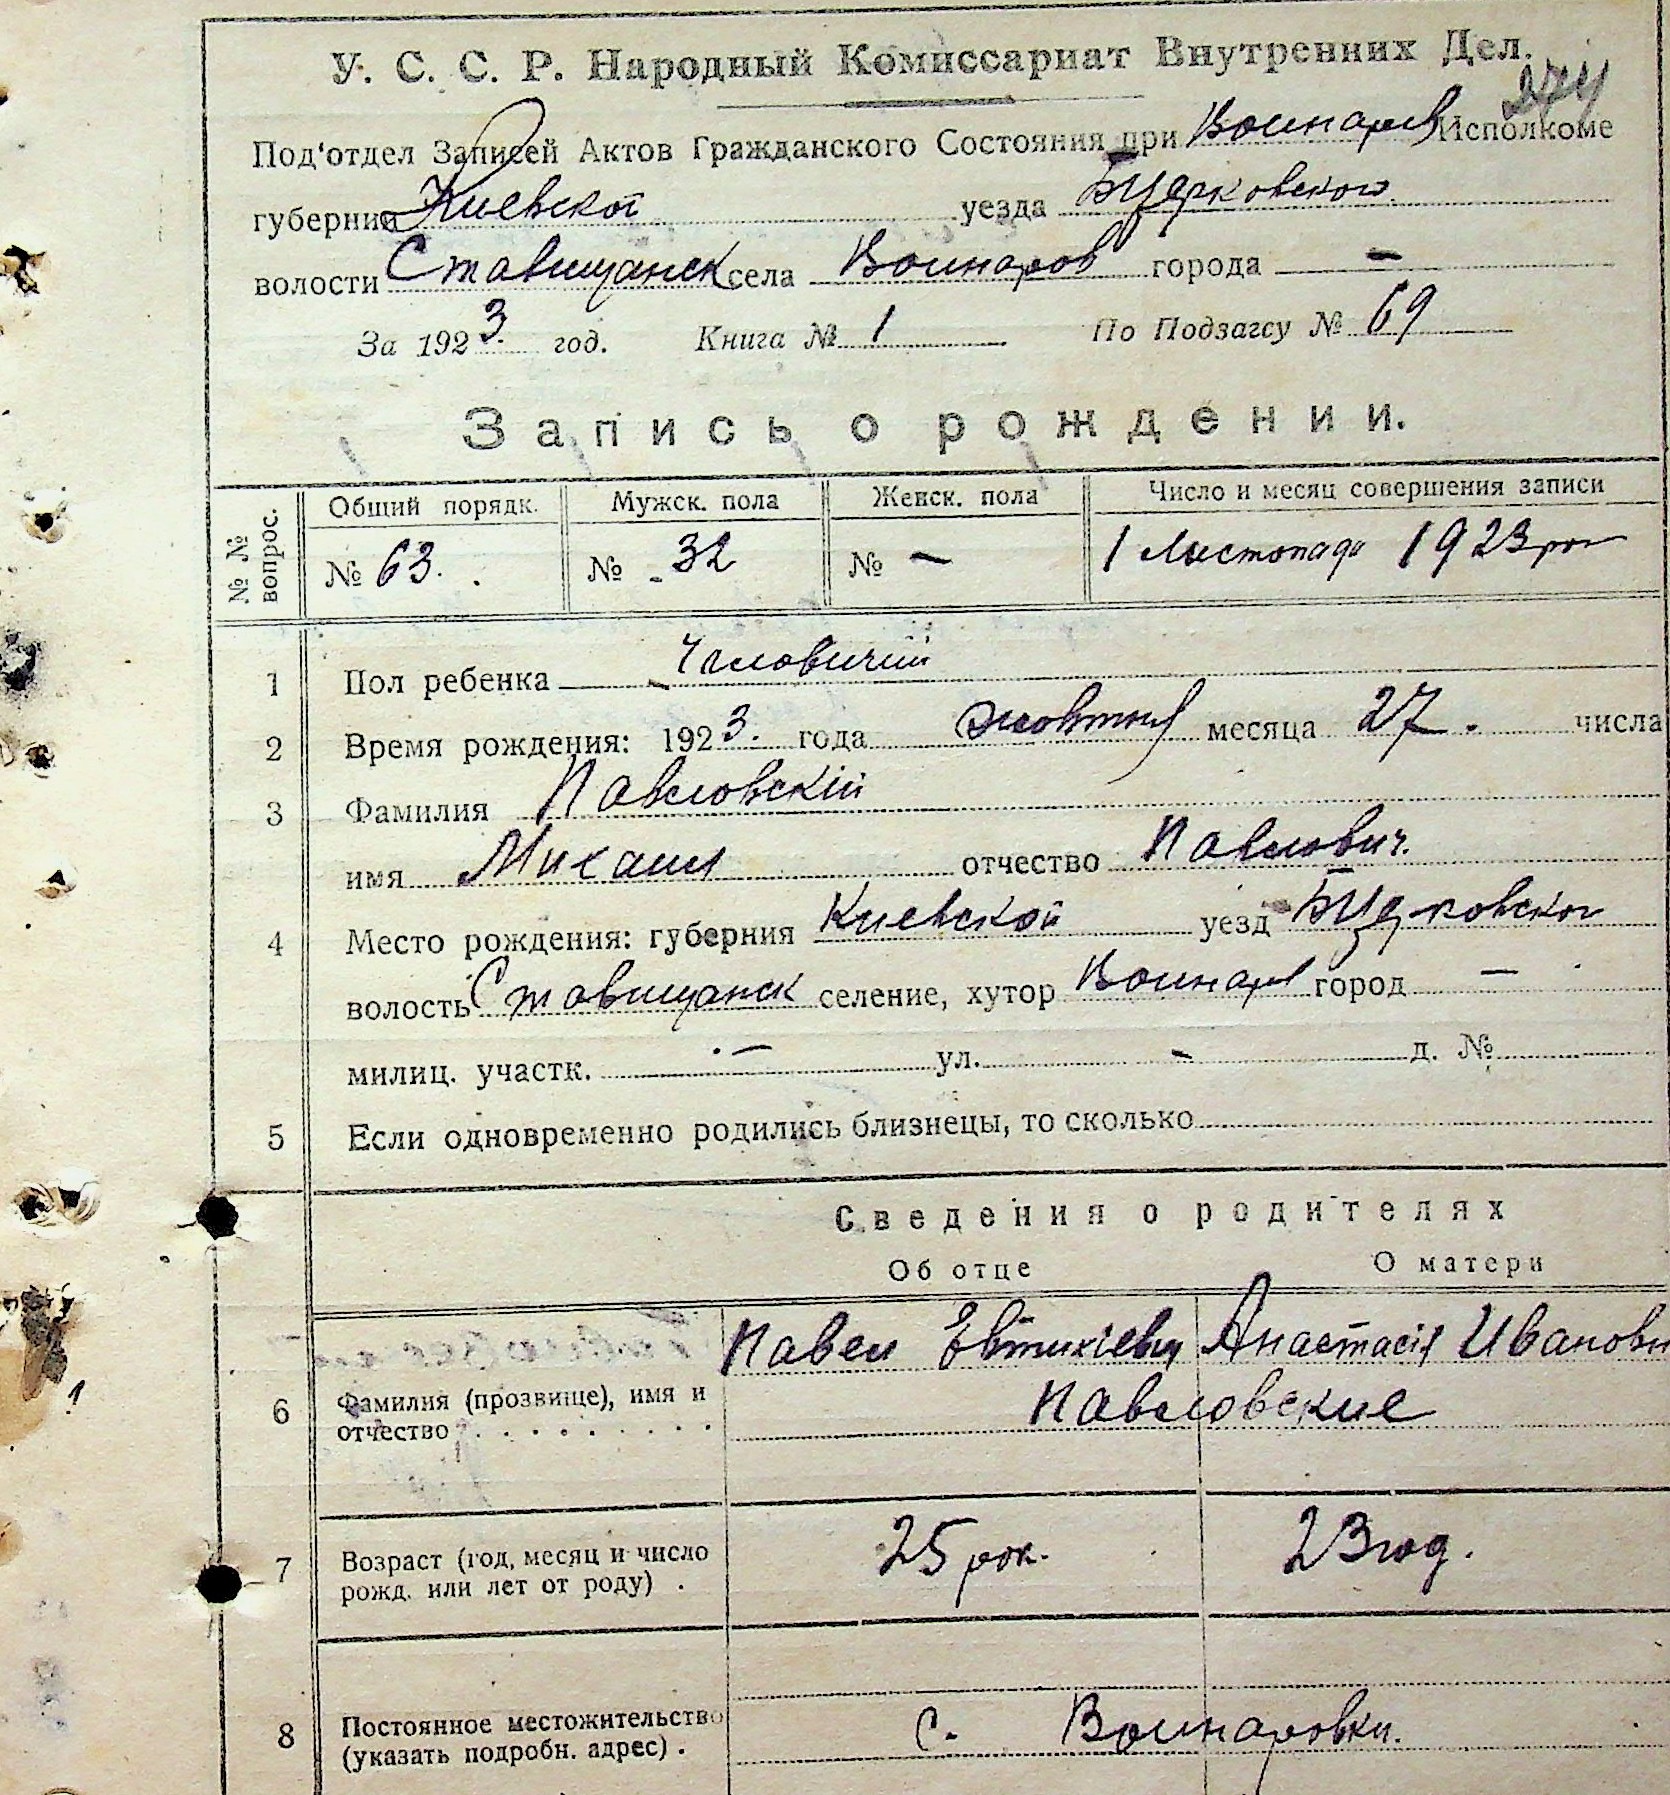 У. С. С. Р. Народный Комиссариат Внутренних Дел.
274
Под'отдел Записей Актов Гражданского Состояния при Воинаров Исполкоме
губернии Киевской уезда Бцерковского
волости Ставищанск села Воинаров города —
За 1923 год. Книга № 1 По Подзагсу № 69
Запись о рождении.
№ № вопрос. Общий порядк. Мужск. пола Женск. пола Число и месяц совершения записи
№ 63. № 32 № — 1 Листопада 1923 рок
1 Пол ребенка Чоловичий
2 Время рождения: 1923. года жовтня месяца 27. числа
3 Фамилия Павловскій
имя Михаил отчество Павлович.
4 Место рождения: губерния Киевской уезд Бцерковског
волость Ставищанск селение, хутор Воинаров город —
милиц. участк. — ул. - д. №
5 Если одновременно родились близнецы, то сколько
Сведения о родителях
Об отце О матери
Павел Евтихіевич Анастасія Ивановн
6 Фамилия (прозвище), имя и Павловские
отчество . . . . . . . . . .
7 Возраст (год, месяц и число 25 рок. 23 год.
рожд. или лет от роду) .
8 Постоянное местожительство с. Воинаровки.
(указать подробн. адрес) .